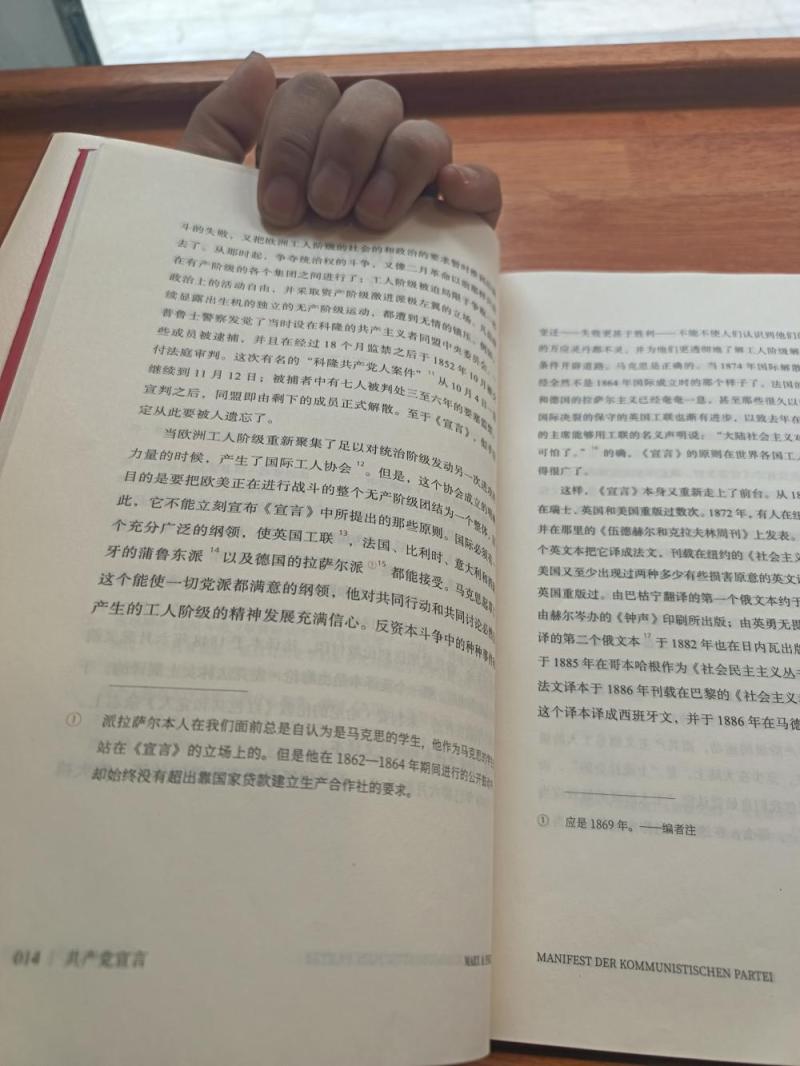 斗的失败，又把欧洲工人阶级的社会的和政治的要求暂时推
去了。从那时起，争夺统治权的斗争，又像二月革命以前那样
在有产阶级的各个集团之间进行了；工人阶级被迫局限于争取
政治上的活动自由，并采取资产阶级激进派极左翼的立场。凡是
续显露出生机的独立的无产阶级运动，都遭到无情的镇压。例如
普鲁士警察发觉了当时设在科隆的共产主义者同盟中央委员会
些成员被逮捕，并且在经过 18 个月监禁之后于 1852 年 10 月
付法庭审判。这次有名的“科隆共产党人案件” 11 从 10 月 4 日
继续到 11 月 12 日；被捕者中有七人被判处三至六年的要塞监禁
宣判之后，同盟即由剩下的成员正式解散。至于《宣言》，
定从此要被人遗忘了。
当欧洲工人阶级重新聚集了足以对统治阶级发动另一次进攻
力量的时候，产生了国际工人协会 12 。但是，这个协会成立的
目的是要把欧美正在进行战斗的整个无产阶级团结为一个整体，
此，它不能立刻宣布《宣言》中所提出的那些原则。国际必须
个充分广泛的纲领，使英国工联 13 ，法国、比利时、意大利和西
牙的蒲鲁东派 14 以及德国的拉萨尔派 ①15 都能接受。马克思起草
这个能使一切党派都满意的纲领，他对共同行动和共同讨论必然
产生的工人阶级的精神发展充满信心。反资本斗争中的种种事件
① 派拉萨尔本人在我们面前总是自认为是马克思的学生，他作为马克思的学生
站在《宣言》的立场上的。但是他在 1862—1864 年期间进行的公开鼓动中
却始终没有超出靠国家贷款建立生产合作社的要求。
014 | 共产党宣言
变迁——失败更甚于胜利——不能不使人们认识到他们
的万应灵丹都不灵，并为他们更透彻地了解工人阶级解
条件开辟道路。马克思是正确的。当 1874 年国际解散
经全然不是 1864 年国际成立时的那个样子了。法国
和德国的拉萨尔主义已经奄奄一息，甚至那些很久以
国际决裂的保守的英国工联也渐有进步，以致去年在
的主席能够用工联的名义声明说：“大陆社会主义对
可怕了。” 16 的确，《宣言》的原则在世界各国工人
得很广了。
这样，《宣言》本身又重新走上了前台。从 18
在瑞士、英国和美国重版过数次。1872 年，有人在纽
并在那里的《伍德赫尔和克拉夫林周刊》上发表。
个英文本把它译成法文，刊载在纽约的《社会主义
美国又至少出现过两种多少有些损害原意的英文译
英国重版过。由巴枯宁翻译的第一个俄文本约于
由赫尔岑办的《钟声》印刷所出版；由英勇无畏
译的第二个俄文本 17 于 1882 年也在日内瓦出版
于 1885 年在哥本哈根作为《社会民主主义丛书
法文译本于 1886 年刊载在巴黎的《社会主义
这个译本译成西班牙文，并于 1886 年在马德
① 应是 1869 年。——编者注
MANIFEST DER KOMMUNISTISCHEN PARTEI